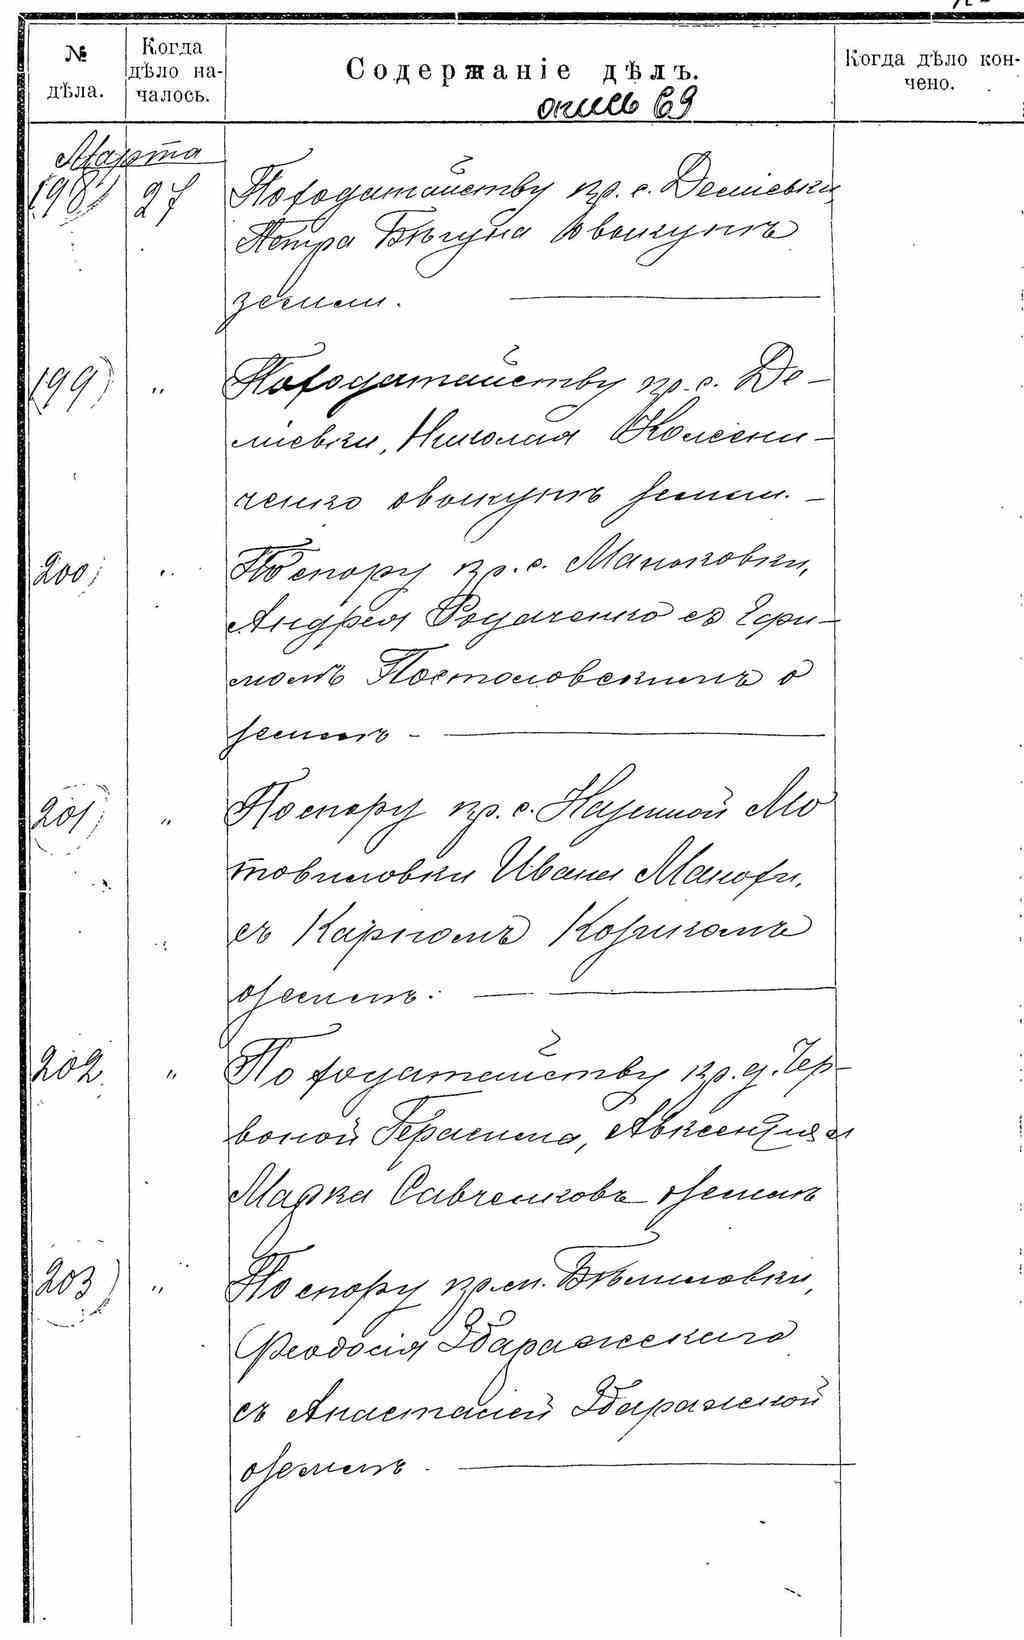 № дѣла.
Когда дѣло на-
чалось.
Содержаніе дѣлъ.
Когда дѣло кон-
чено.
опись 69
Марта
198) 27 По ходатайству кр. с. Деміевки,
Петра Бѣгуна о выкупѣ
земли.
199) " По ходатайству кр. с. Де-
міевки, Николая Колесни-
ченко о выкупѣ земли.
200) " По спору кр. с. Маньковки,
Андрея Родаченко съ Ефи-
момъ Постоловскимъ о
землѣ
201) " По спору кр. с. Казенной Мо
товиловки Ивана Манохи,
съ Карпомъ Козикомъ
о землѣ.
202 " По ходатайству кр. д. Чер-
воной Герасима, Авксентія и
Марка Савченковъ о землѣ
203) " По спору кр. м. Бѣлиловки,
Феодосія Збаражскаго
съ Анастасіей Збаражской
о землѣ.